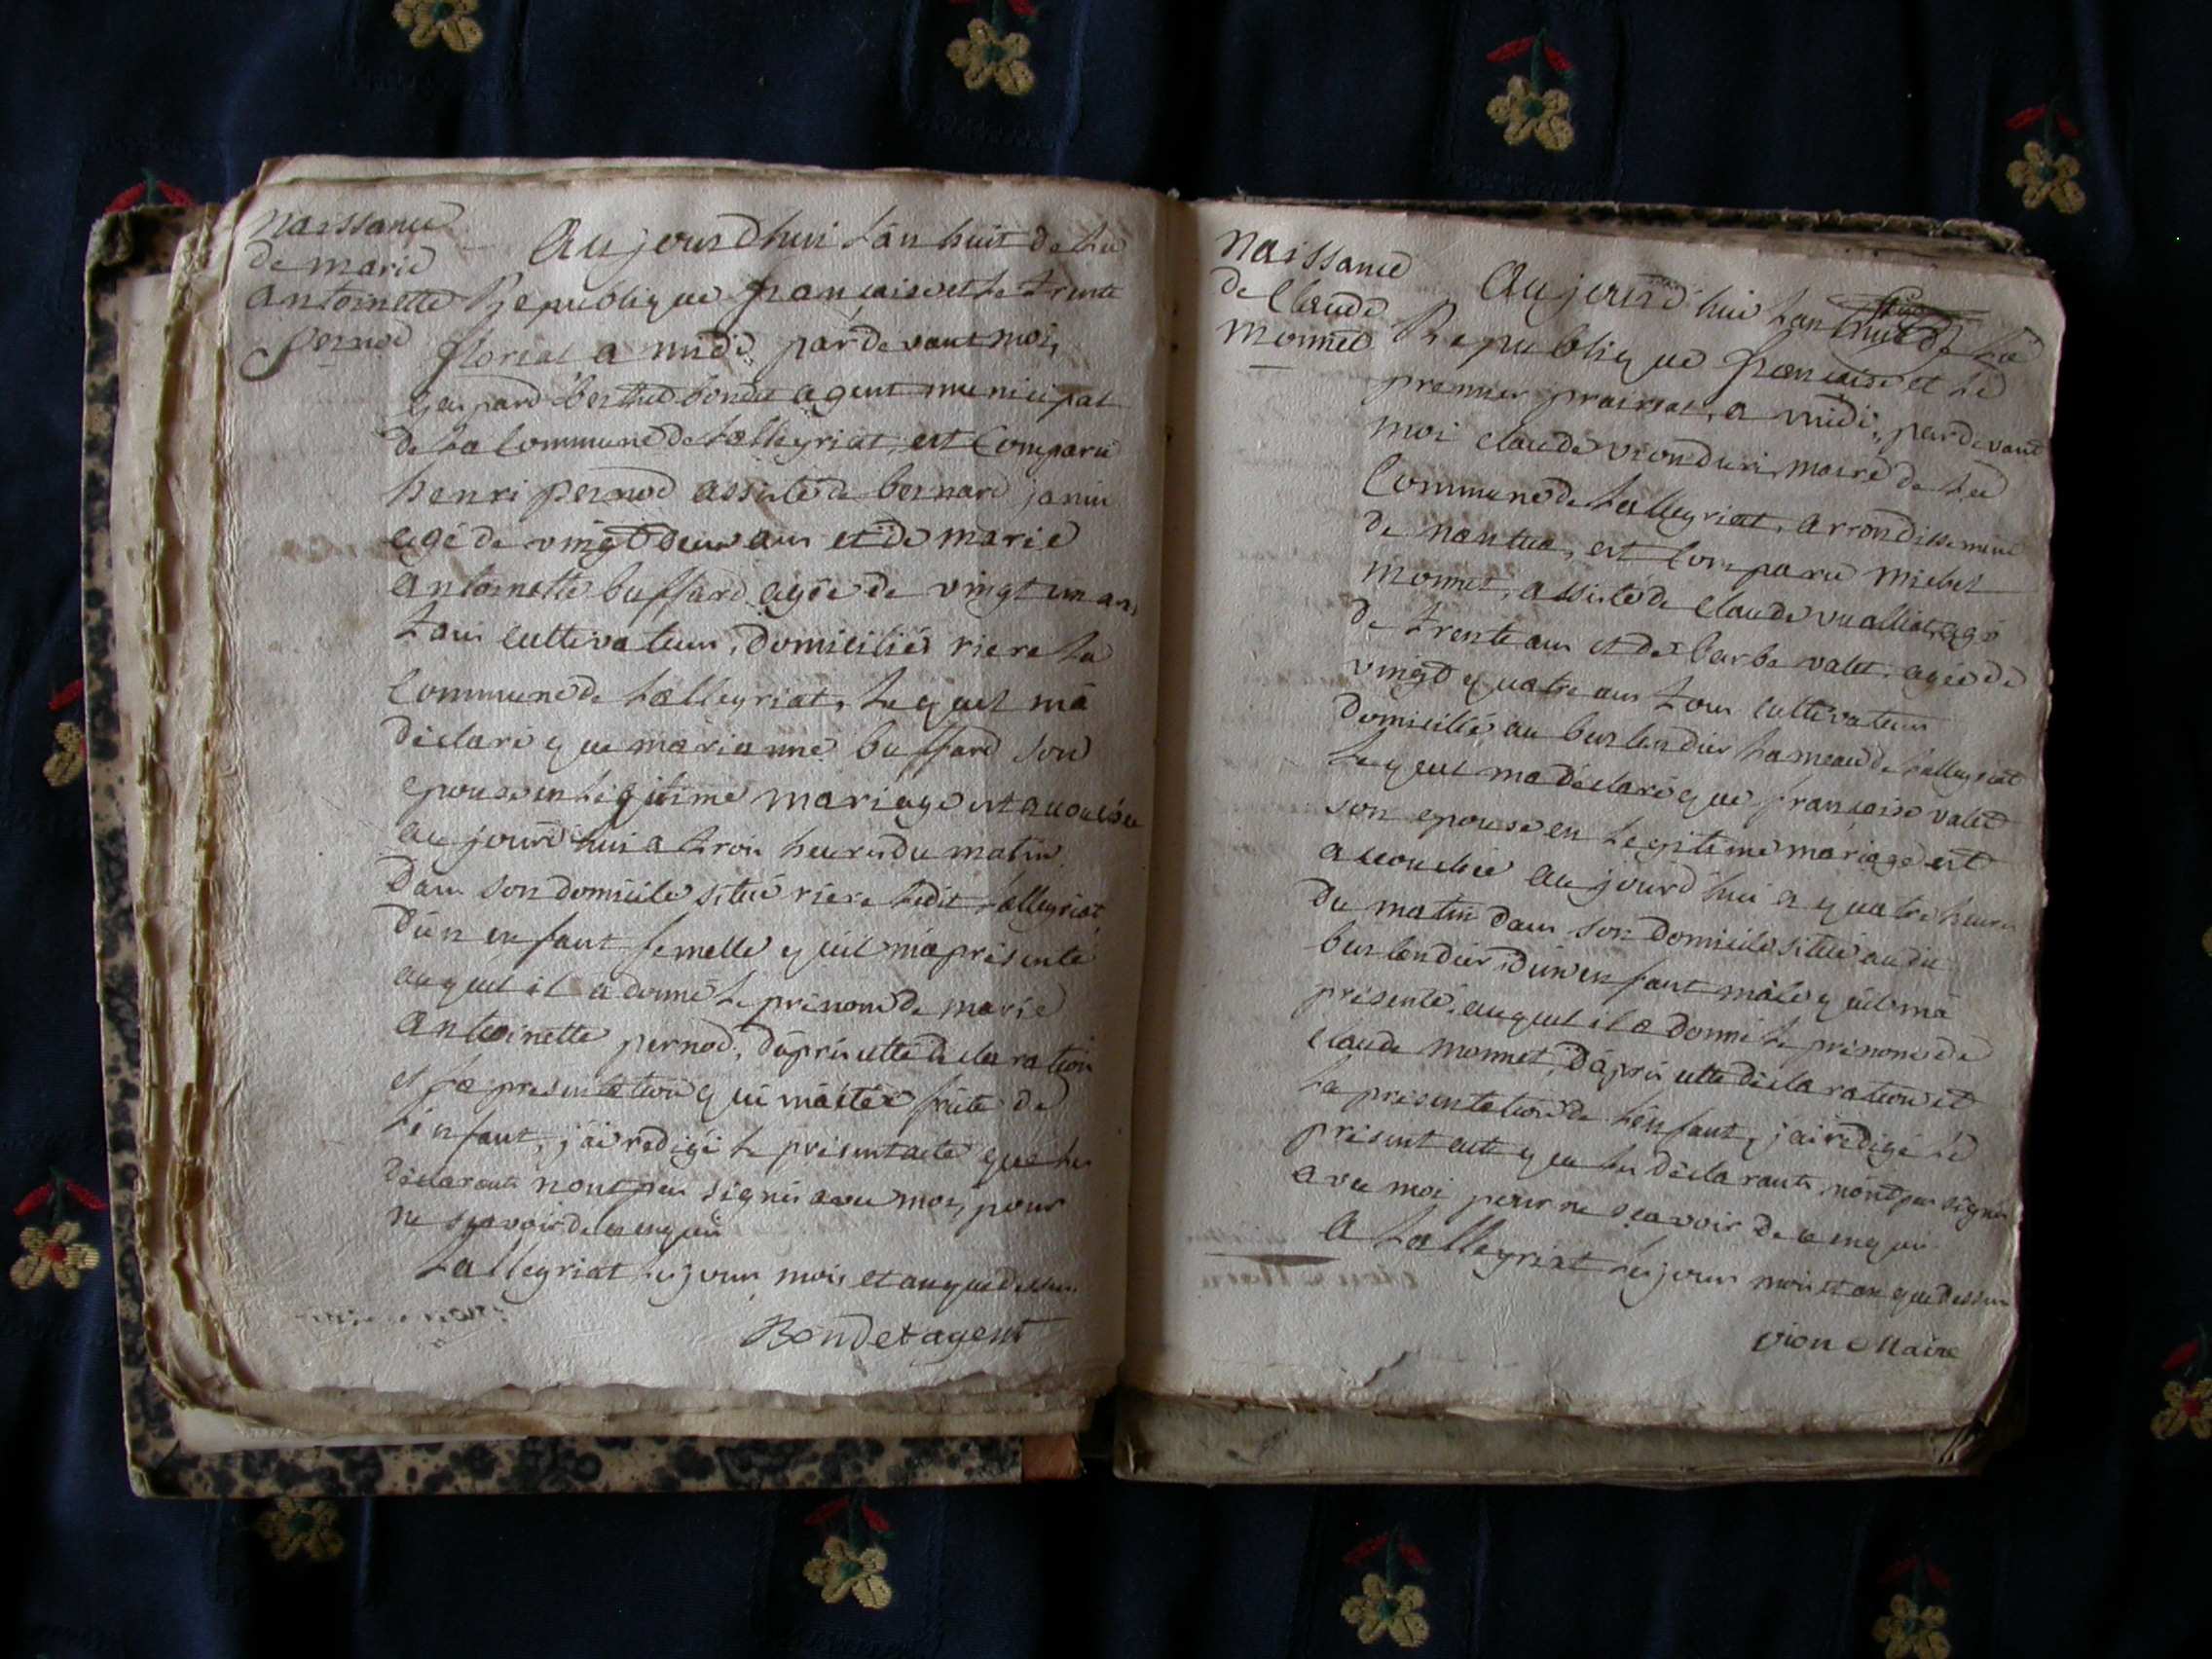 Naissance
de marie
antoinette
pernod
Aujourdhui l'an huit de la
Republique françaiseet le trente
florial a midi, pardevant moi,
gaspard berthet bondet agent municipal
de la Commune de Lalleyriat, est Comparu
henri pernod assisté de bernard janin
agé de vingt deux ans et de marie
antoinette buffard agée de vingt un ans
tous cultivateurs, domiciliés riere la
Commune de Lalleyriat, lequel m'a
déclaré que marianne buffard son
epouse en légitime mariage est accouchée
aujourd'hui a trois heures du matin
dans son domicile situé riere ledit Lalleyriat
d'un enfant femelle qu'il m'a présenté
auquel il a donné le prénom de marie
antoinette pernod, d'après cette déclaration
et la presentation qui m'a été faite de
l'enfant, j'ai redigé le présent acte que les
déclarants n'ont pas signés avec moi, pour
ne sçavoir de ce enquis
Lalleyriat les jour, mois et an que dessus
Bondet agent
Naissance
de Claude
monnet
Aujourd'hui l'an huit de la
Republique françaice et le
premier prairial, a midi, pardevant
moi claude vion duri, maire de la
Commune de Lalleyriat, arrondissement
de nantua, est Comparu michel
monnet, assisté de Claude vualliat, agé
de trente ans et de barbe valet, agée de
vingt quatre ans tous cultivateurs
domicilié au burlandier hameau de Lalleyriat
lequel m'a déclaré que françoise valet
son epouse en legitime mariage est
accouchée aujourd'hui a quatre heures
du matin dans son domicile situé au dit
burlandier, d'un enfant mâle qu'il m'a
présenté, auquel il a donné le prénom de
claude monnet, d'après cette déclaration et
la présentation de l'enfant, j'ai rédigé le
présent acte que les déclarants, n'ont pas signés
avec moi pour ne sçavoir de ce enquis
a Lalleyriat les jour mois et an que dessus
vion Maire